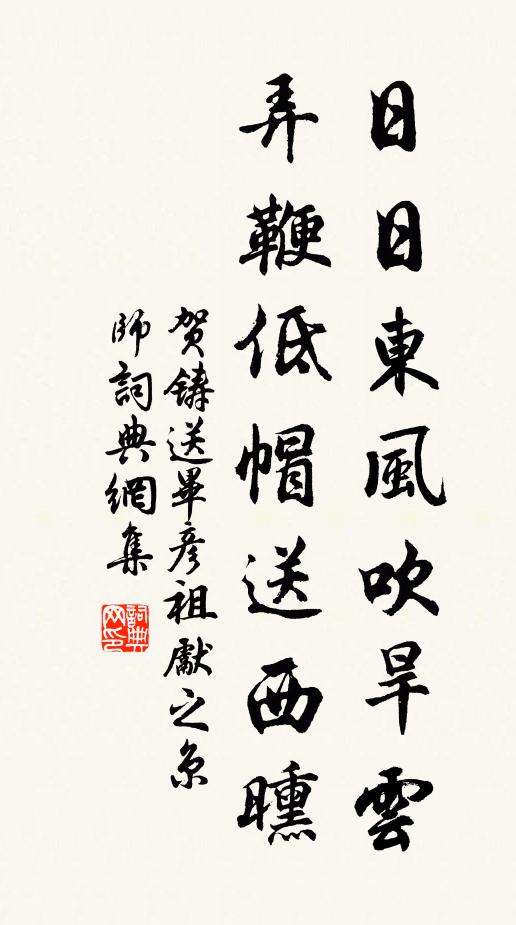 日日東風吹旱雲
弄鞭低帽送西曛
賀鑄送畢彥祖獻之京
師詞典網集
詞典
网印